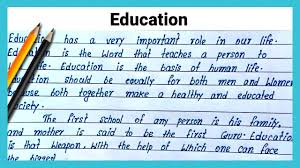 Education
Education has a very important role in our life.
Education is the word that teaches a person to
life. Education is the basis of human life.
Education should be equally for both men and Women
because both together make a healthy and educated
society.
The first school of any person is his family,
and mother is said to be the first Guru. Education
is that Weapon. With the help of which one can face
the biggest